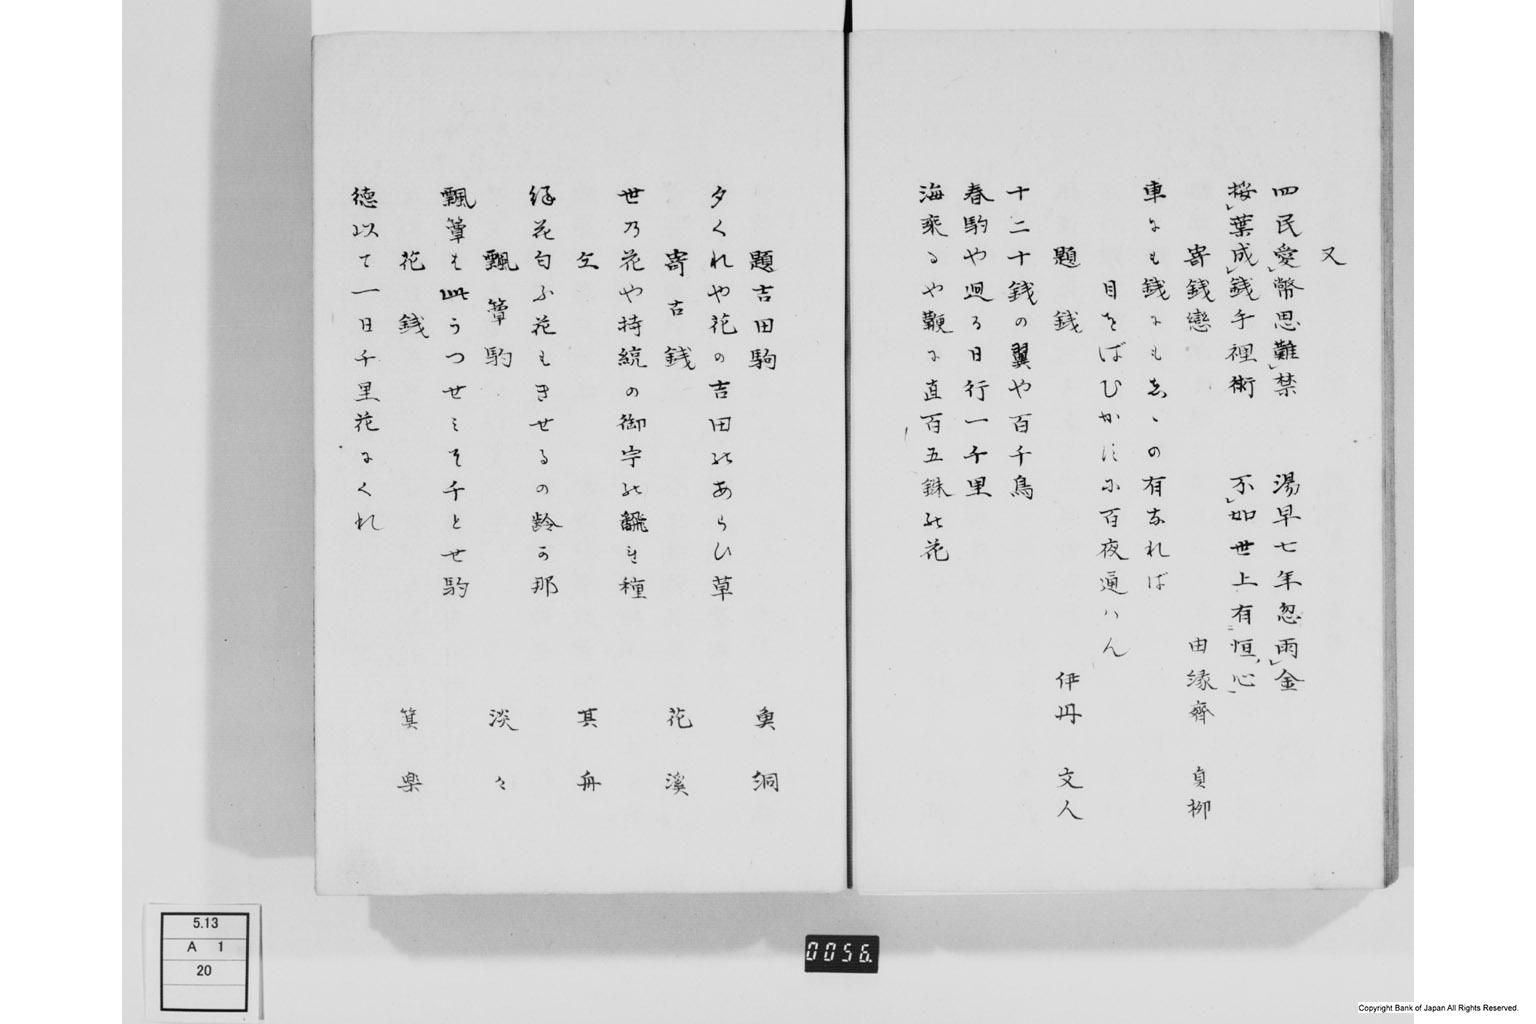 又
四民愛幣思難禁 湯早七年忽雨金
桜葉成銭手裡術 不如世上有恒心
寄銭戀 由縁齋 貞柳
車にも銭にもあゝの有なれば
目をばひかバに百夜通ハん
題 銭 伊丹 文人
十二十銭の翼や百千鳥
春駒や廻る日行一千里
海乗るや鞭に直百五銖の花
題吉田駒 奥洞
夕くれや花の吉田のあらひ草
寄古銭 花溪
世乃花や持統の御宇の飜す種
仝 其舟
花匂ふ花もきせるの齢可那
瓢箪駒 淡々
瓢箪は此うつせミそ千とせ駒
花銭 箕楽
徳以て一日千里花にくれ
5.13
A 1
20
0056.
Copyright Bank of Japan All Rights Reserved.